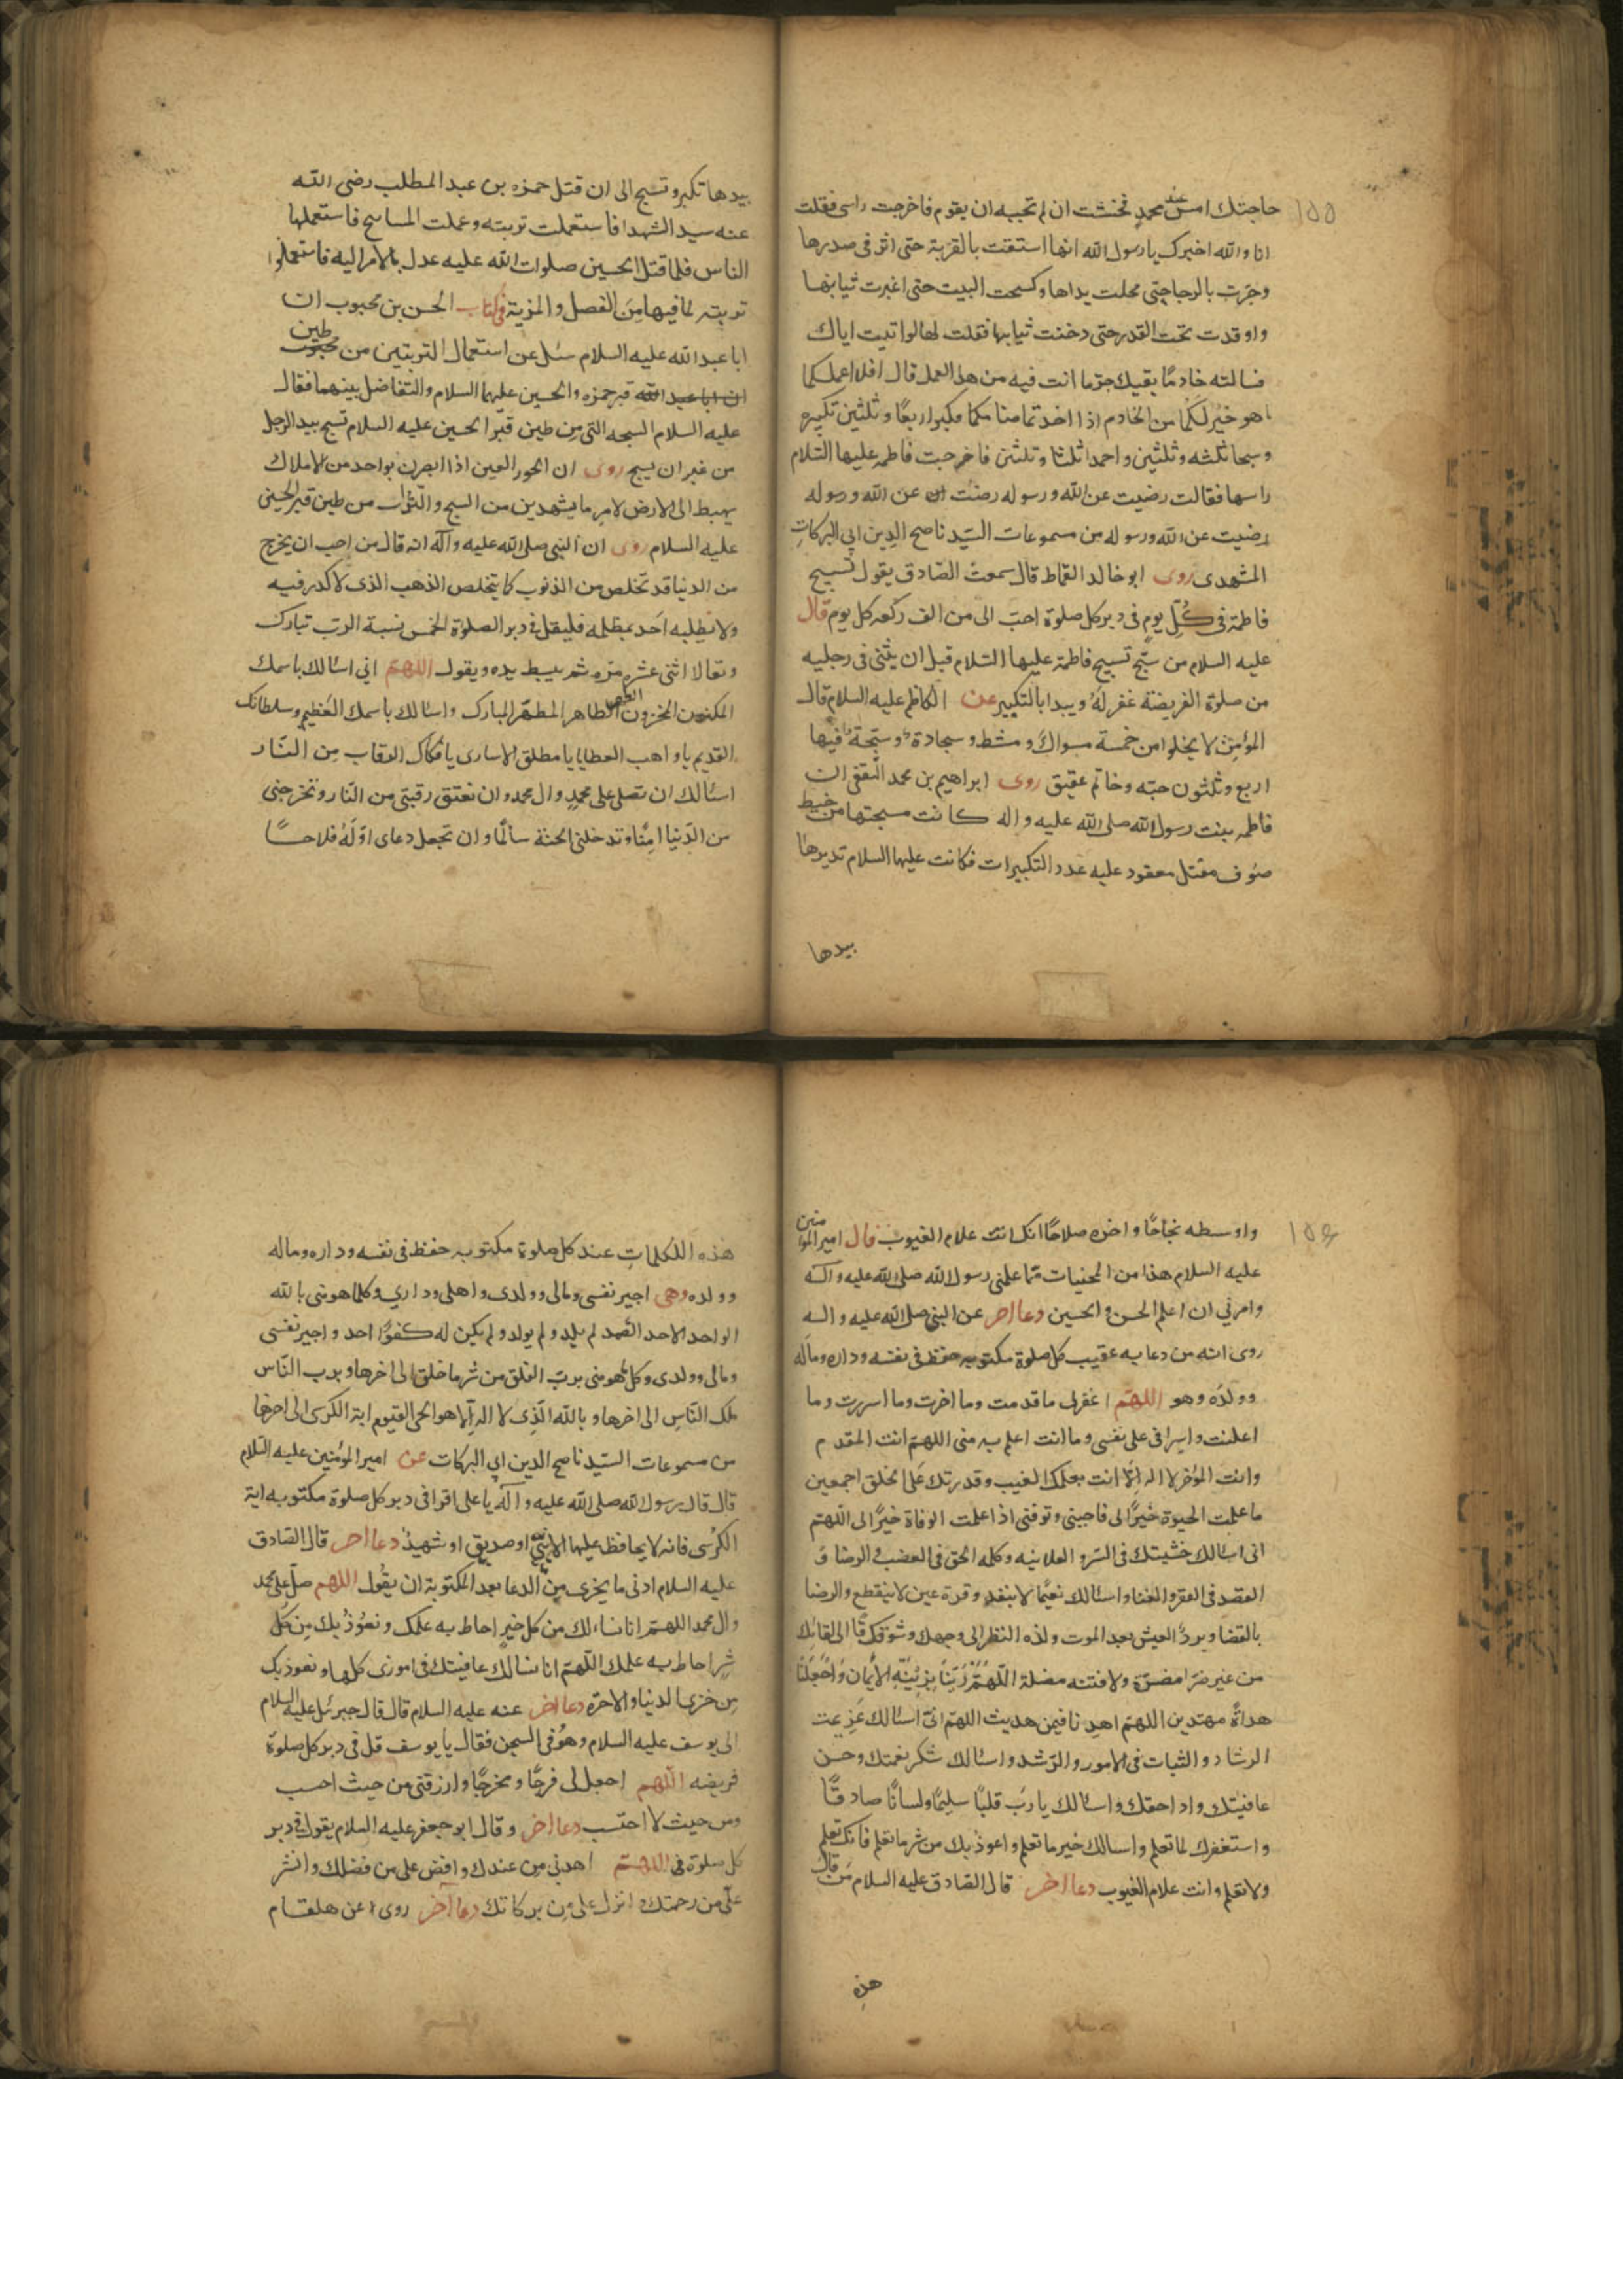 ١٥٥
حاجتك امس عند محمد فخشت ان لم تجبه ان يقوم فاخرجت راسى فقلت
انا والله اخبرك يا رسول الله انها استقت بالقربة حتى اثر فى صدرها
وجرت بالرحا حتى مجلت يداها وكسحت البيت حتى اغبرت ثيابها
واوقدت تحت القدر حتى دخنت ثيابها فقلت لها لو اتيت اباك
فسالته خادمًا يقيك حر ما انت فيه من هذا العمل قال افلا اعلمكما
ما هو خير لكما من الخادم اذا اخذتما منامكما فكبرا اربعًا وثلثين تكبيره
وسبحا ثلثه وثلثين واحمدا ثلثا وثلثين فاخرجت فاطمه عليها السلام
راسها فقالت رضيت عن الله ورسوله رضيت عن الله ورسوله
رضيت عن الله ورسوله من مسموعات السيد ناصح الدين ابي البركات
المشهدى روى ابو خالد القماط قال سمعت الصادق يقول تسبيح
فاطمة فى كل يوم فى دبر كل صلوة احب الى من الف ركعه كل يوم قال
عليه السلام من سبح تسبيح فاطمة عليها السلام قبل ان يثنى فى رجليه
من صلوة الفريضة غفر له ويبدا بالتكبير عن الكاظم عليه السلام قال
المؤمن لا يخلوا من خمسة مسواك ومشط وسجادة وسبحة فيها
اربع وثلثون حبّه وخاتم عقيق روى ابراهيم بن محمد الثقفى ان
فاطمه بنت رسول الله صلى الله عليه واله كانت مسبحتها من خيط
صوف مفتل معقود عليه عدد التكبيرات فكانت عليها السلام تديرها
بيدها
بيدها تكبر وتسبح الى ان قتل حمزه بن عبد المطلب رضى الله
عنه سيد الشهدا فاستعملت تربته وعملت المسابيح فاستعملها
الناس فلما قتل الحسين صلوات الله عليه عدل بالامر اليه فاستعملوا
تربته لما فيها من الفضل والمزية فى كتاب الحسن بن محبوب ان
ابا عبد الله عليه السلام سئل عن استعمال التربتين من طين
قبر حمزه والحسين عليهما السلام والتفاضل بينهما فقال
عليه السلام السبحه التى من طين قبر الحسين عليه السلام تسبح بيد الرجل
من غير ان يسبح روى ان الحور العين اذا ابصرن بواحد من الاملاك
يهبط الى الارض لامر ما يستهدين من السبح والتراب من طين قبر الحسين
عليه السلام روى ان النبى صلى الله عليه وآله انه قال من احب ان يخرج
من الدنيا قد تخلص من الذنوب كما يتخلص الذهب الذى لا كدر فيه
ولا يطلبه احد بمظلمه فليقل فى دبر الصلوة الخمس نسبة الرب تبارك
وتعالا اثنى عشره مره ثم يبسط يده ويقول اللهم اني اسئالك باسمك
المكنون المخزون الطهر الطاهر المطهر المبارك واسئالك باسمك العظيم وسلطانك
القديم يا واهب العطايا يا مطلق الاسارى يا فكاك الرقاب من النار
اسئالك ان تصلى على محمد وال محمد وان تعتق رقبتى من النار وتخرجنى
من الدنيا امنًا وتدخلنى الجنة سالمًا وان تجعل دعاى اوله فلاحًا
١٥٦
واوسطه نجاحًا واخره صلاحًا انك انت علام الغيوب قال امير المؤمنين
عليه السلام هذا من المخبيات مما علمنى رسول الله صلى الله عليه واله
وامرني ان اعلم الحسن والحسين دعا اخر عن النبى صلى الله عليه واله
روى انه من دعا به عقيب كل صلوة مكتوبه حفظ فى نفسه وداره وماله
وولده وهو اللهم اغفر لى ما قدمت وما اخرت وما اسررت وما
اعلنت واسرافى على نفسى وما انت اعلم به منى اللهم انت المقدم
وانت المؤخر لا اله الا انت بعلمك الغيب وقدرتك على الخلق اجمعين
ما علمت الحيوة خيرًا لى فاحينى وتوفنى اذا علمت الوفاة خيرًا لى اللهم
انى اسئالك خشيتك فى السر والعلانيه وكلمه الحق فى الغضب والرضا و
القصد فى الفقر والغنا واسئالك نعيمًا لا ينفد وقرة عين لا ينقطع والرضا
بالقضا وبرد العيش بعد الموت ولذه النظر الى وجهك وشوقًا الى لقائك
من غير ضرا مضرة ولا فتنه مضلة اللهم زينا بزينة الايمان واجعلنا
هداة مهتدين اللهم اهدنا فيمن هديت اللهم انى اسئالك عزيمت
الرشاد والثبات فى الامور والرشد واسئالك شكر نعمتك وحسن
عافيتك واداء حقك واسئالك يا رب قلبًا سليمًا ولسانًا صادقًا
واستغفرك لما تعلم واسالك خير ما تعلم واعوذ بك من شر ما تعلم فانك تعلم
ولا نعلم وانت علام الغيوب دعا اخر قال الصادق عليه السلام من قال
هذه
هذه الكلمات عند كل صلوة مكتوبه حفظ فى نفسه وداره وماله
وولده وهى اجير نفسى ومالى وولدى واهلى وداري وكلما هو منى بالله
الواحد الاحد الصمد لم يلد ولم يولد ولم يكن له كفوًا احد واجير نفسى
ومالى وولدى وكل ما هو منى برب الفلق من شر ما خلق الى اخرها وبرب الناس
ملك الناس الى اخرها وبالله الذى لا اله الا هو الحى القيوم اية الكرسى الى اخرها
من مسموعات السيد ناصح الدين ابى البركات عن امير المؤمنين عليه السلام
قال قال رسول الله صلى الله عليه وآله يا على اقرا فى دبر كل صلوة مكتوبه اية
الكرسى فانه لا يحافظ عليها الا نبى او صديق او شهيد دعا اخر قال الصادق
عليه السلام ادنى ما يجزى من الدعا بعد المكتوبة ان يقول اللهم صل على محمد
وال محمد اللهم انا نسالك من كل خير احاط به علمك ونعوذ بك من كل
شر احاط به علمك اللهم انا نسالك عافيتك فى امورى كلها ونعوذ بك
من خزى الدنيا والاخرة دعا اخر عنه عليه السلام قال قال جبرئل عليه السلام
الى يوسف عليه السلام وهو فى السجن فقال يا يوسف قل فى دبر كل صلوة
فريضه اللهم اجعل لى فرجًا ومخرجًا وارزقنى من حيث احسب
ومن حيث لا احتسب دعا اخر وقال ابو جعفر عليه السلام يقول فى دبر
كل صلوة اللهم اهدنى من عندك وافض على من فضلك وانشر
على من رحمتك وانزل على من بركاتك دعا آخر روى عن هلقام